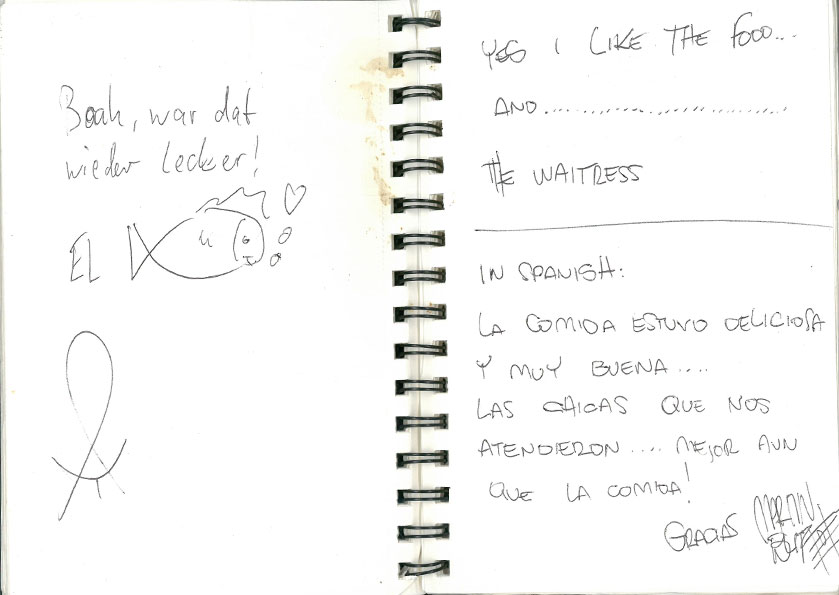 Boah, war dat
wieder lecker!
EL
YES I LIKE THE FOOD...
AND..............................
THE WAITRESS
IN SPANISH:
LA COMIDA ESTUVO DELICIOSA
Y MUY BUENA....
LAS CHICAS QUE NOS
ATENDIERON.... MEJOR AUN
QUE LA COMIDA!
GRACIAS MARTIN